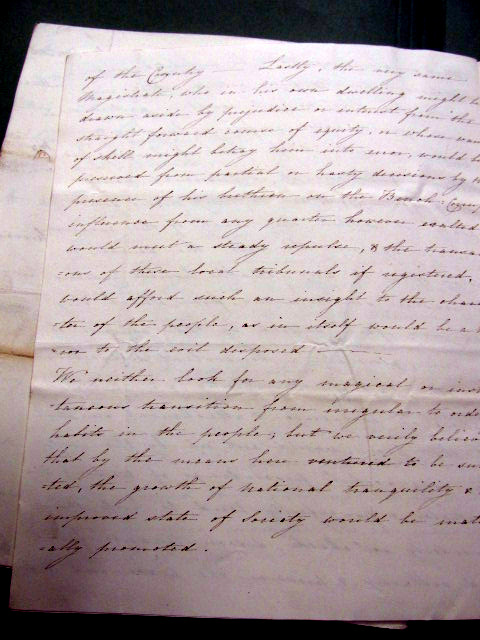 of the County — Lastly, the very same
Magistrate who in his own dwelling might be
drawn aside by prejudice or interest from the
straight forward course of equity, or whose want
of skill might betray him into error, would be
preserved from partial or hasty decisions by the
presence of his brethren on the Bench. Corrupt
influence from any quarter however exalted
would meet a steady repulse, & the transac
=ons of these local tribunals if registered,
would afford such an insight to the charac
=ter of the people, as in itself would be a
to the evil disposed —
We neither look for any magical or inst
taneous transition from irregular to orde
habits in the people, but we verily believe
that by the means here ventured to be sug
=ted, the growth of national tranquility &
improved state of Society would be mate
=ally promoted.